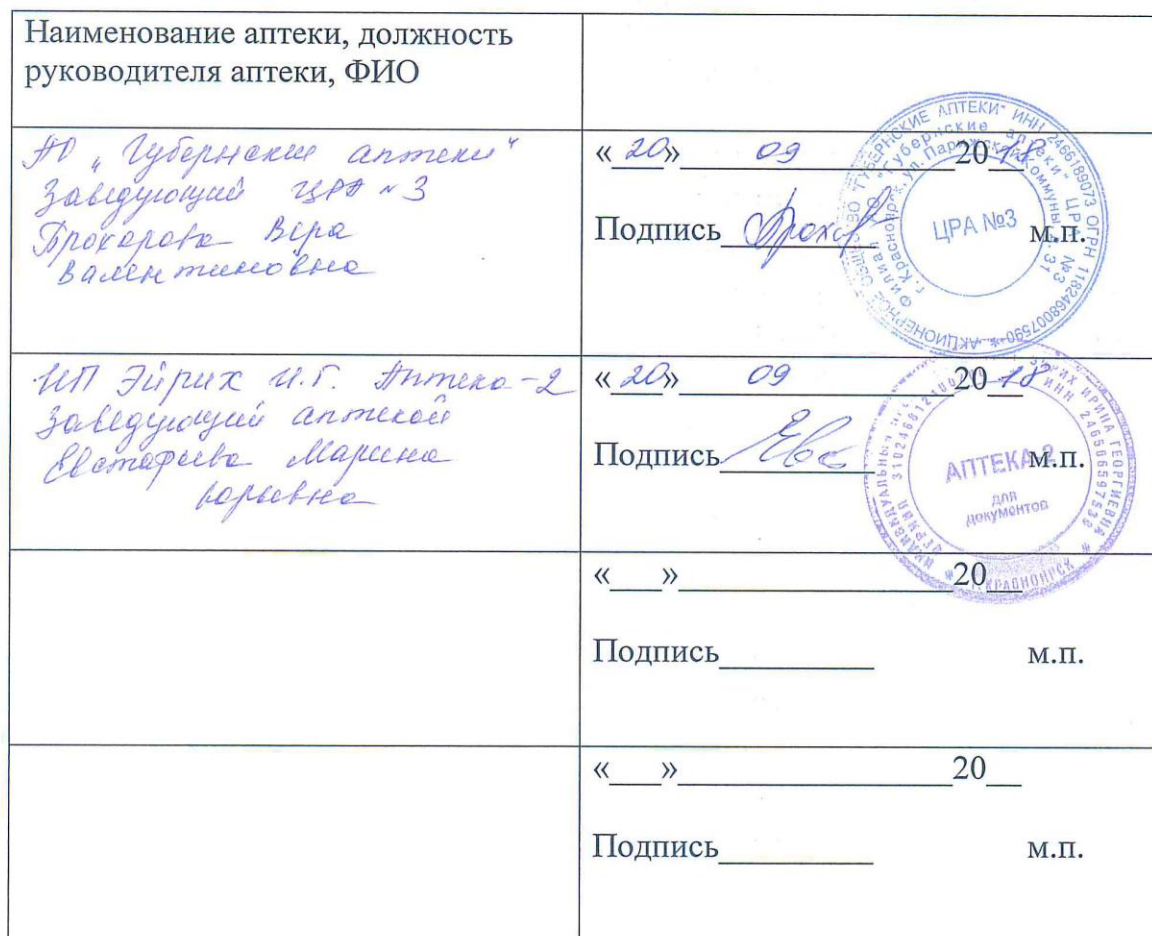 Наименование аптеки, должность
руководителя аптеки, ФИО
АО „Губернские аптеки"
Заведующий ЦРА №3
Прохорова Вера
Валентиновна
«20» 09 2018
Подпись м.п.
АКЦИОНЕРНОЕ ОБЩЕСТВО "ГУБЕРНСКИЕ АПТЕКИ" ИНН 2466189073 ОГРН 1182468007590 *
Филиал АО "Губернские аптеки" ЦРА №3
г. Красноярск, ул. Парижской Коммуны, 31
ЦРА №3
ИП Эйрих И.Г. Аптека-2
Заведующий аптекой
Евстафьева Марина
Юрьевна
«20» 09 2018
Подпись м.п.
ИНДИВИДУАЛЬНЫЙ ЭЙРИХ ИРИНА ГЕОРГИЕВНА * Г.КРАСНОЯРСК *
ОГРНИП ИНН
АПТЕКА 2
для
документов
«___»_______________20__
Подпись_________ м.п.
«___»_______________20__
Подпись_________ м.п.